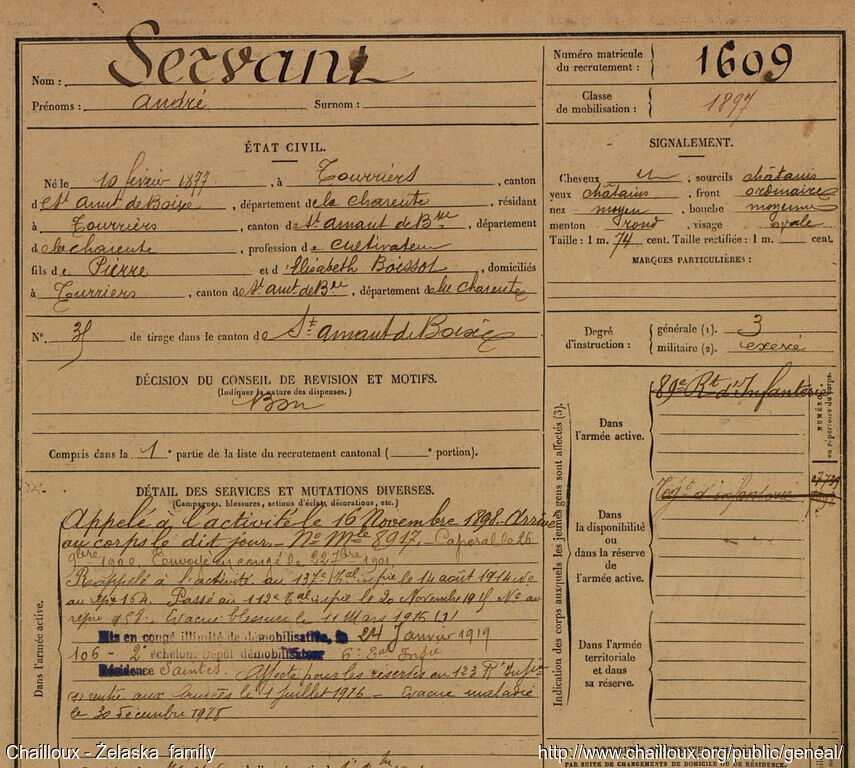 Nom : Servant
Prénoms : André Surnom :
Numéro matricule du recrutement : 1609
Classe de mobilisation : 1897
ÉTAT CIVIL.
Né le 10 février 1877, à Tourriers, canton
d St Amt de Boixe, département de la Charente, résidant
à Tourriers, canton de St Amant de Bxe, département
d la Charente, profession de cultivateur
fils de Pierre et d'Elisabeth Boissot, domiciliés
à Tourriers, canton de St Amt de Bxe, département de la Charente
N°. de tirage dans le canton de St Amant de Boixe
SIGNALEMENT.
Cheveux, sourcils châtains
yeux châtains, front ordinaire
nez moyen, bouche moyenne
menton rond, visage ovale
Taille : 1 m. 74 cent. Taille rectifiée : 1 m. cent.
MARQUES PARTICULIÈRES :
Degré d'instruction :
générale (1). 3
militaire (2). exercé
DÉCISION DU CONSEIL DE REVISION ET MOTIFS.
(Indiquer la nature des dispenses.)
Bon
Compris dans la 1e partie de la liste du recrutement cantonal ( e portion).
DÉTAIL DES SERVICES ET MUTATIONS DIVERSES.
(Campagnes, blessures, actions d'éclat, décorations, etc.)
Appelé à l'activité le 16 Novembre 1898. Arrivé
au corps le dit jour. N° Mle 8917. Caporal le 26
1900. Envoyé en congé le 22 7bre 1901.
Rappelé à l'activité au 137e le 14 août 1914 N° au
164. Passé au 112e le 20 Novembre 1915 N° au
Evacué blessure le 11 Mars 1916 (1)
Mis en congé illimité de démobilisation, le 24 Janvier 1919
106 - 2e échelon Dépôt démobilisateur 6e
Résidence Saintes. Affecté pour les réserves au 123 Rt Infie
(1) rentré aux armées le 1 juillet 1916 - Evacué maladie
le 30 décembre
Dans l'armée active.
Indication des corps auxquels les jeunes gens sont affectés (3).
NUMÉRO
au répertoire du corps.
Dans l'armée active.
89e Rt d'Infanterie
Dans la disponibilité ou dans la réserve de l'armée active.
d'infanterie
Dans l'armée territoriale et dans sa réserve.
PAR SUITE DE CHANGEMENTS DE DOMICILE OU DE RÉSIDENCE.
Chailloux - Želaska family
http://www.chailloux.org/public/geneal/